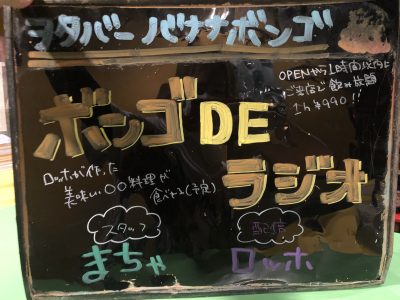 ヲタバー バナナボンゴ
OPENから1時間以内に
ご来店で飲み放題
1h ¥990!!
ボンゴDE
ラジオ
ロッホが作った
美味い○○料理が
食べれる(予定)
スタッフ
まちゃ
配信
ロッホ